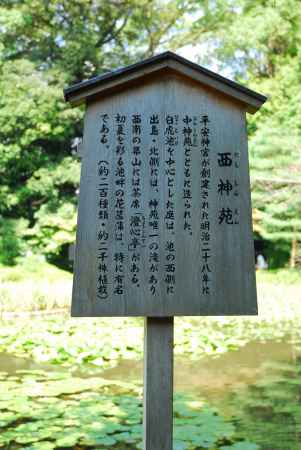 西神苑
にし しん えん
平安神宮が創建された明治二十八年に
中神苑とともに造られた。
白虎池を中心とした庭は、池の西側に
出島・北側には、神苑唯一の滝があり
西南の築山には茶席「澄心亭」がある。
初夏を彩る池畔の花菖蒲は、特に有名
である。（約二百種類・約二千株植栽）